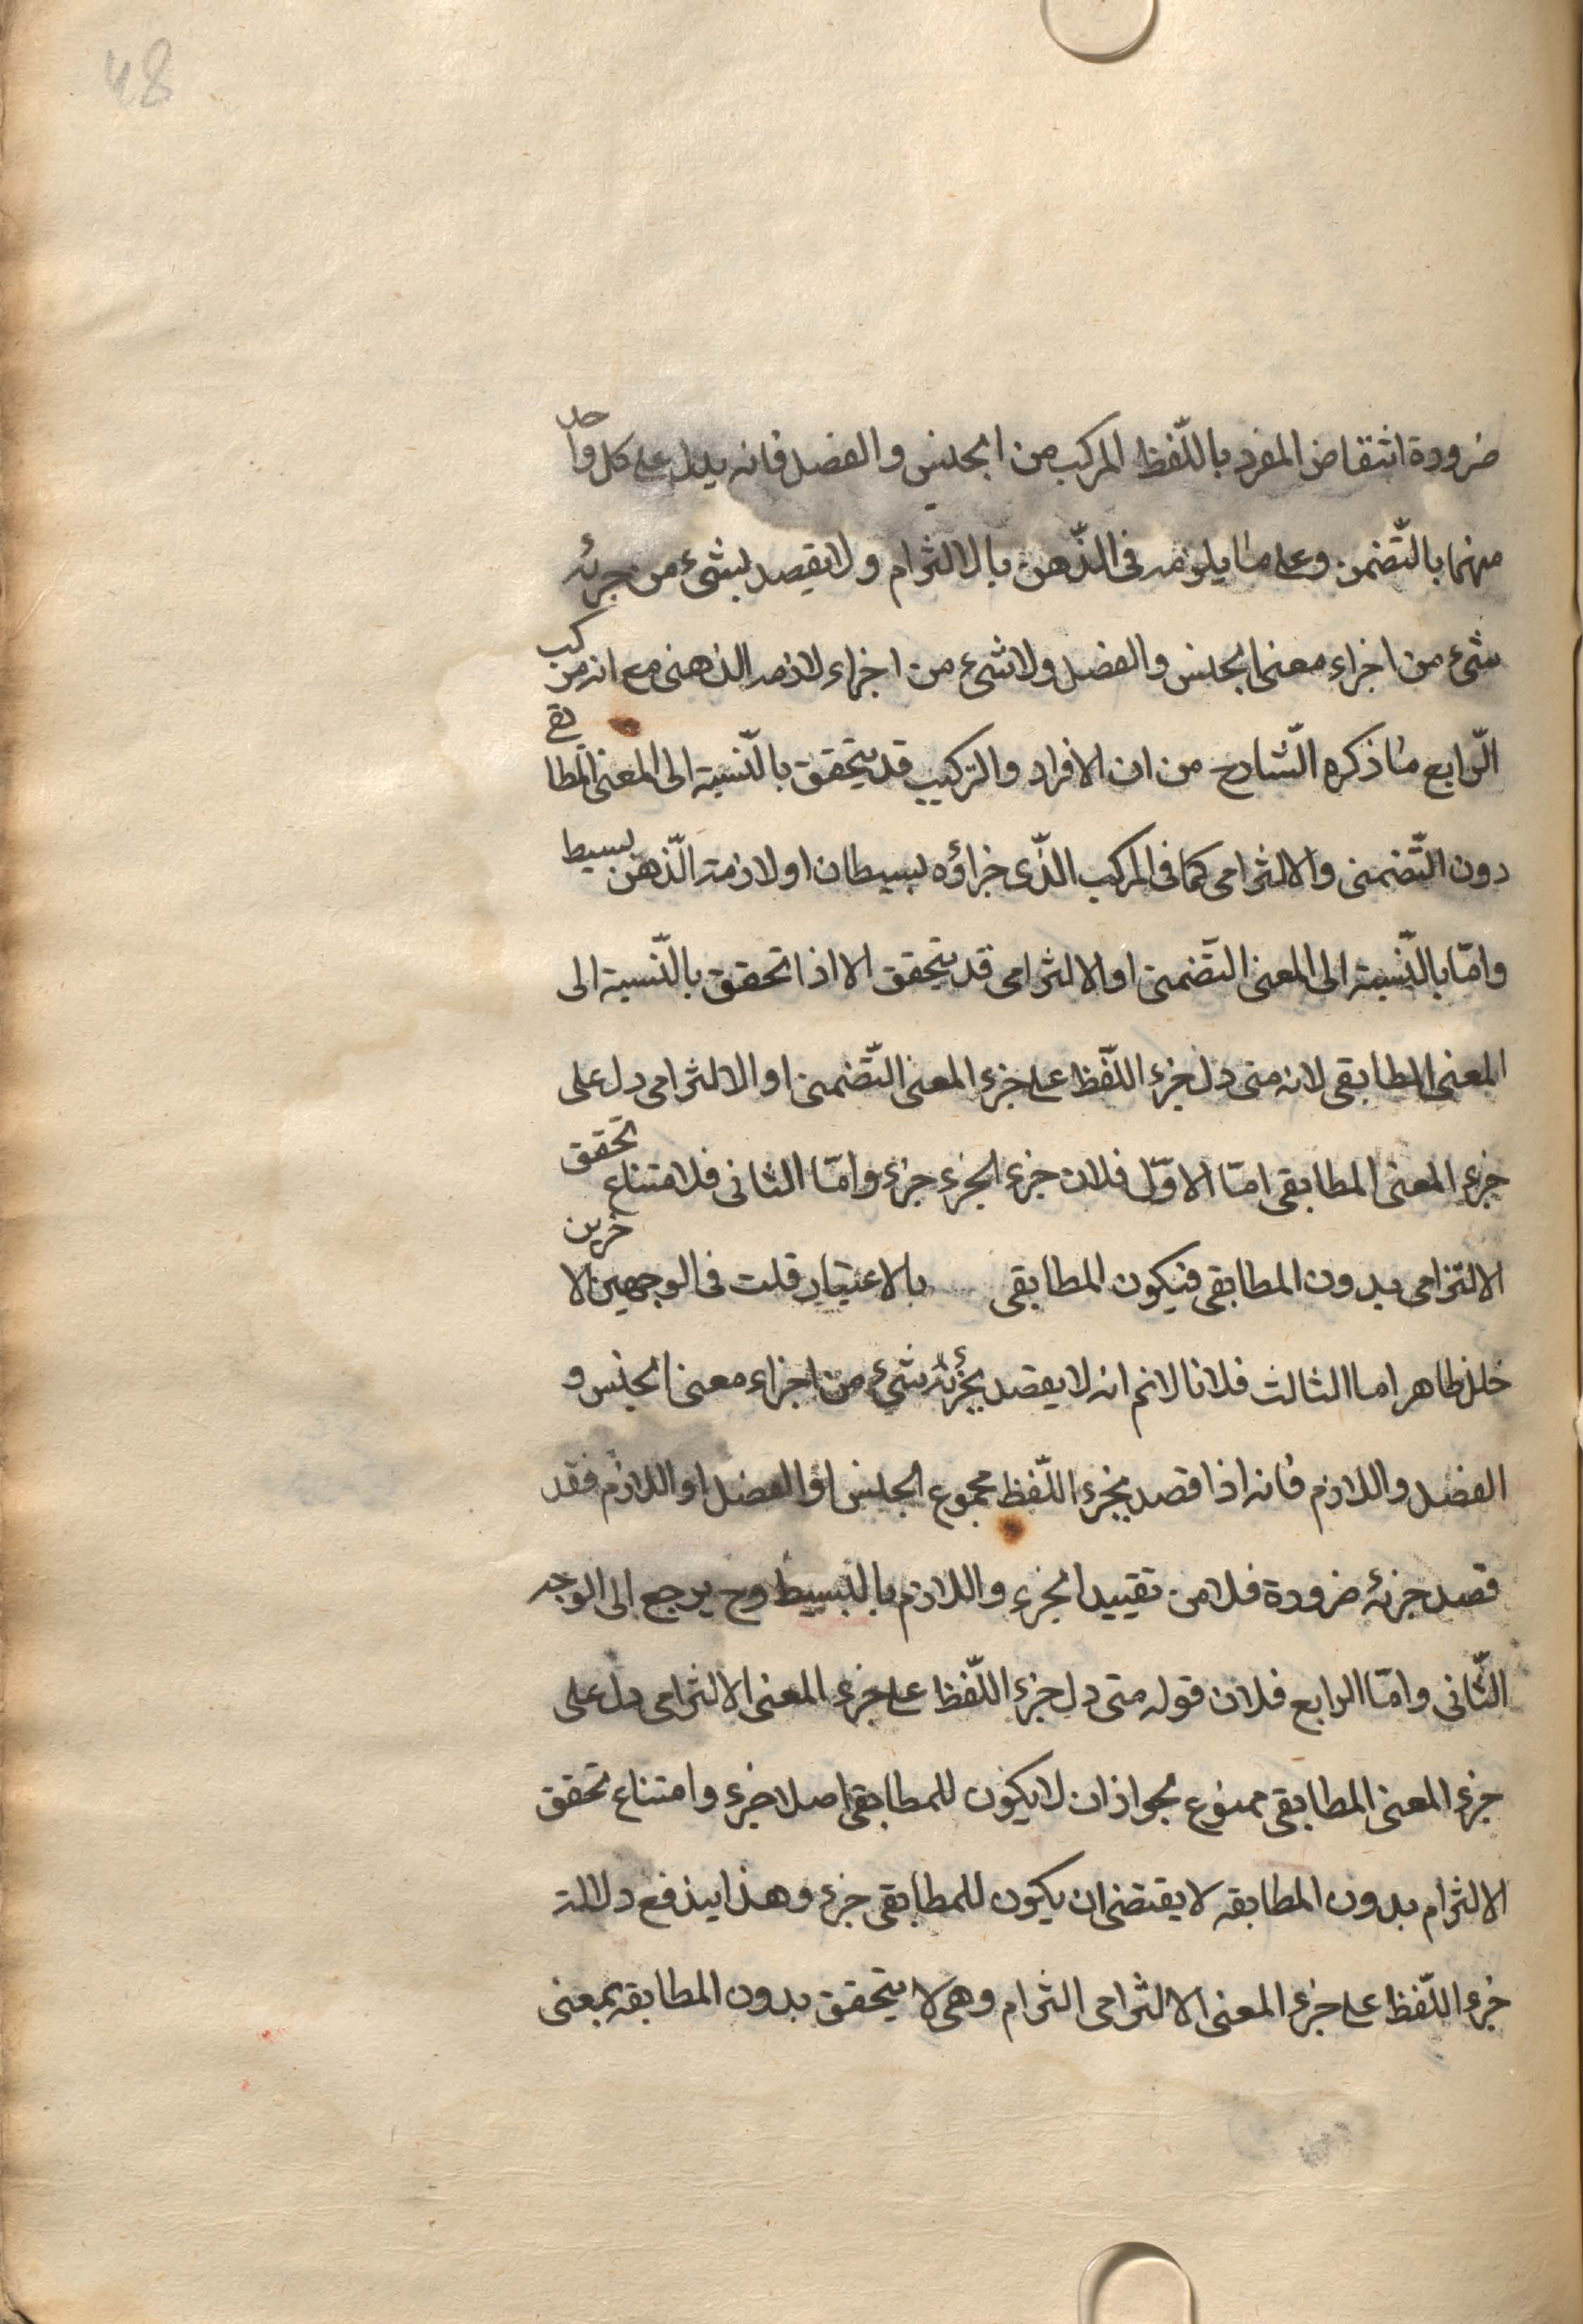 48
ضرورة انتقاض المفرد باللّفظ المركب من الجنس والفصل فانه يدل على كل واحد
منهما بالتّضمن وعلى ما يلزمه فى الذّهن بالالتزام ولا يقصد بشىء من جزئه
شىء من اجزاء معنى الجنس والفصل ولا شىء من اجزاء لازمه الذهنى مع انه مركب
الرّابع ما ذكره الشّارح من ان الافراد والتركيب قد يتحقق بالنّسبة الى المعنى المطابقى
دون التّضمنى والالتزامى كما فى المركب الذّى جزاؤه بسيطان او لازمه الذّهن بسيط
وامّا بالنّسبة الى المعنى التّضمنى او الالتزامى قد يتحقق الا اذا تحقق بالنّسبة الى
المعنى المطابقى لانه متى دل جزء اللّفظ على جزء المعنى التّضمنى او الالتزامى دل على
جزء المعنى المطابقى امّا الاوّل فلان جزء الجزء جزء وامّا الثانى فلامتناع تحقق
الالتزامى بدون المطابقى فيكون المطابقى بالاعتبار قلت فى الوجهين الاخرين
خلل ظاهر اما الثالث فلانا لانم انه لا يقصد بجزئه شىء من اجزاء معنى الجنس و
الفصل واللازم فانه اذا قصد بجزء اللّفظ مجموع الجنس او الفصل او اللازم فقد
قصد جزئه ضرورة فلا من تقييد الجزء واللازم بالبسيط وح يرجع الى الوجه
الثّانى وامّا الرابع فلان قوله متى دل جزء اللّفظ على جزء المعنى الالتزامى دل على
جزء المعنى المطابقى ممنوع لجواز ان لا يكون للمطابقى اصلا جزء وامتناع تحقق
الالتزام بدون المطابقه لا يقتضى ان يكون للمطابقى جزء وهذا يندفع دلالة
جزء اللّفظ على جزء المعنى الالتزامى التزام وهى لا يتحقق بدون المطابقه بمعنى